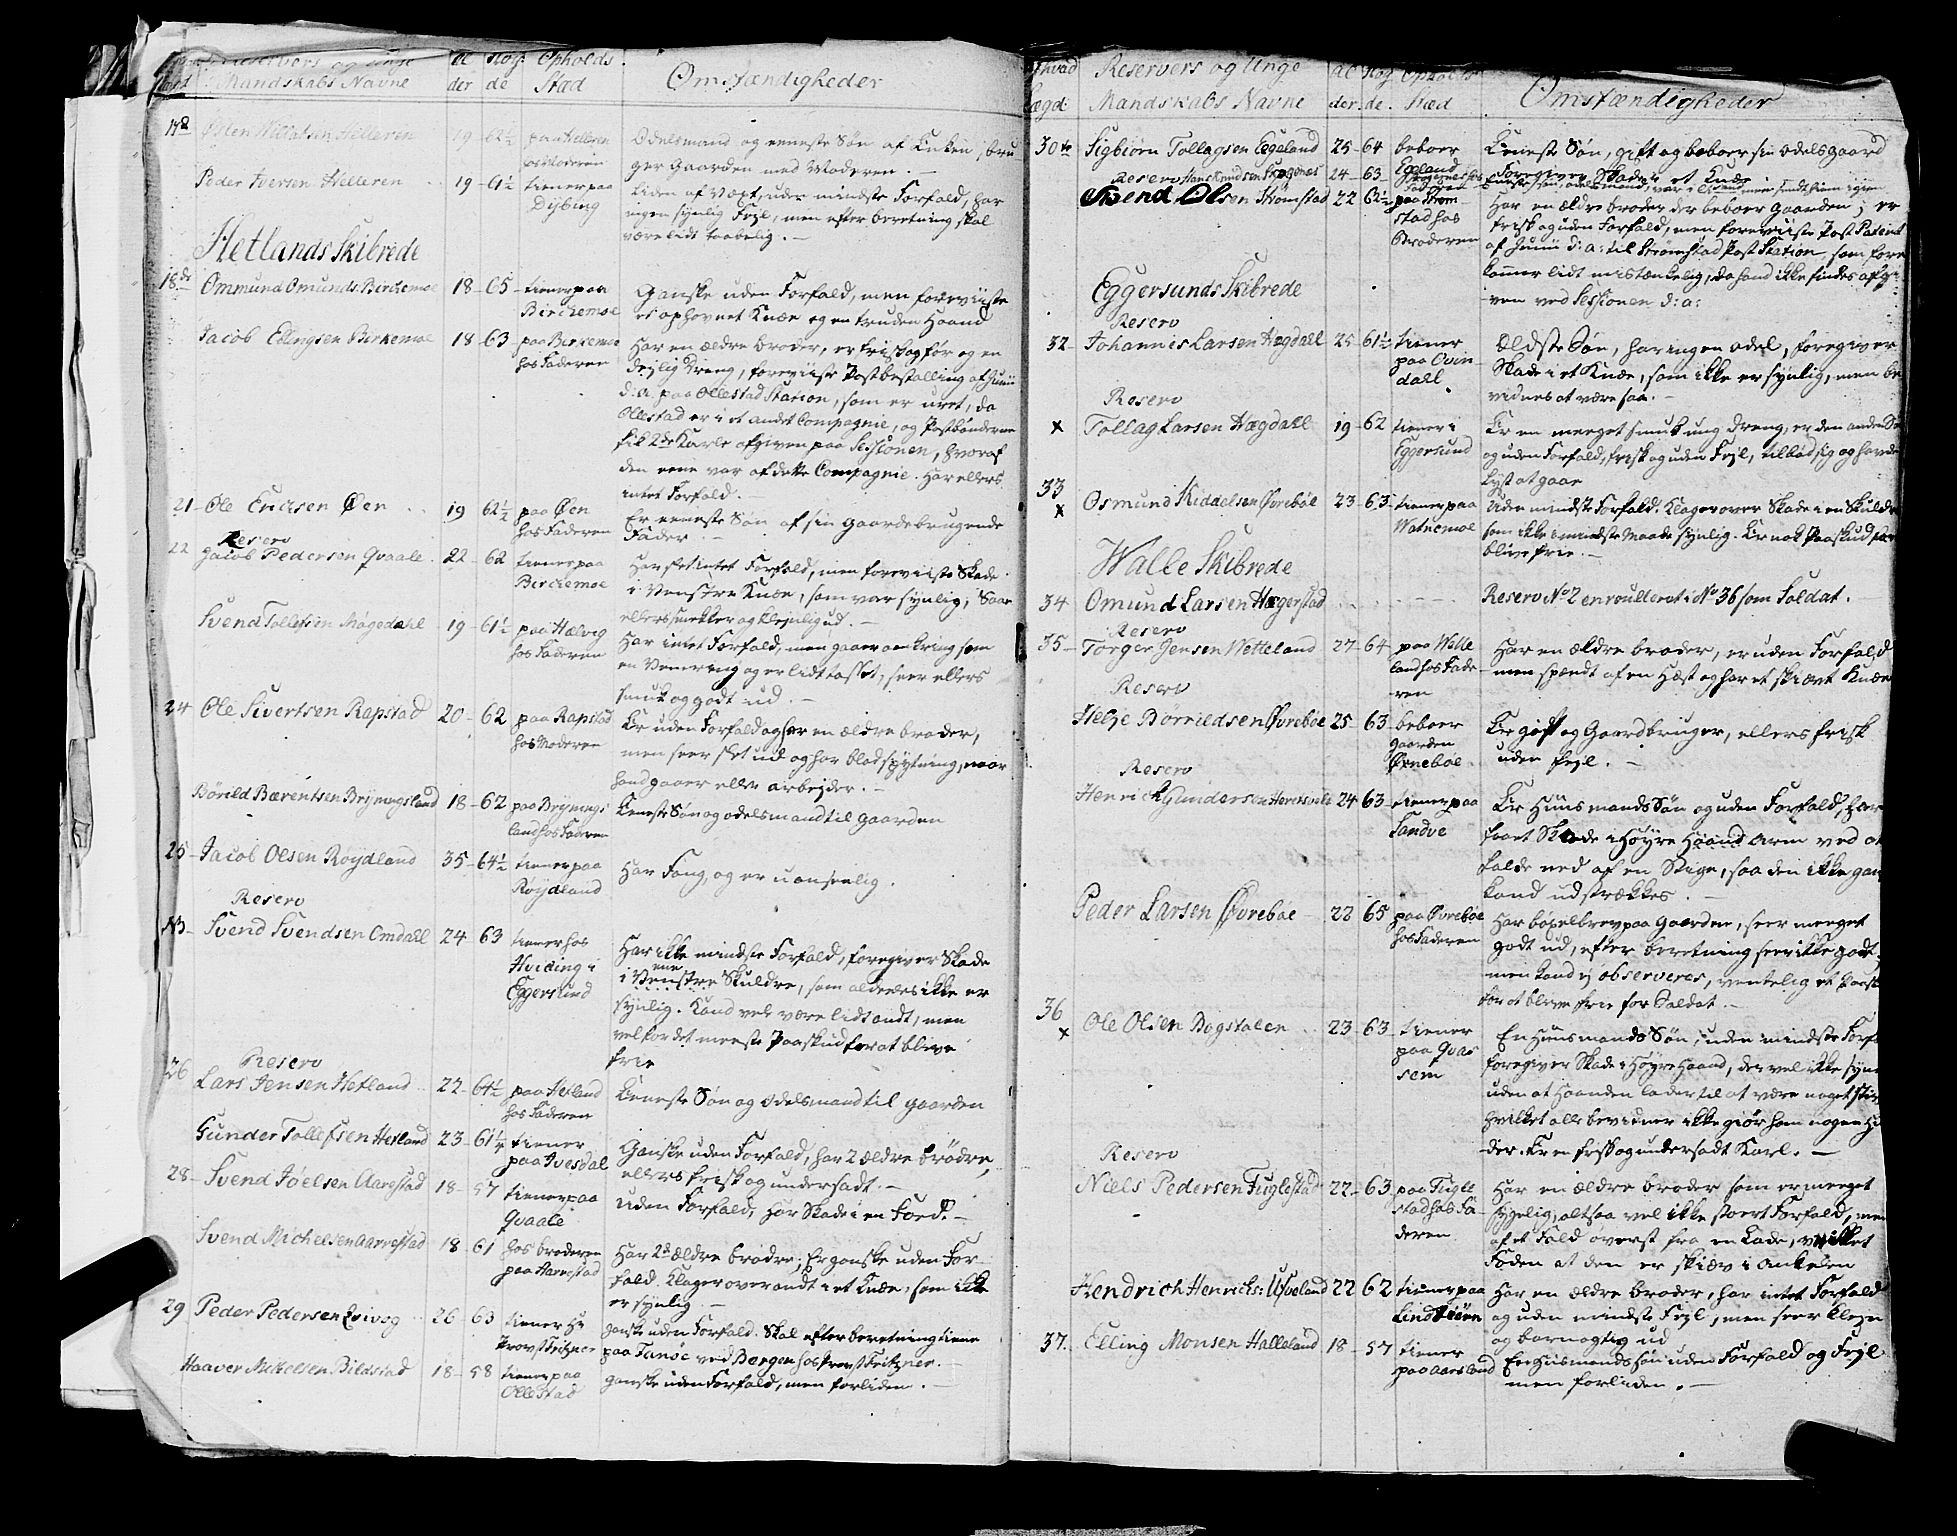 Reservers og Unge Mandskabs Navne
Al der
Høy de
Opholds Stæd
Omstændigheder
17de Østen Willatsen Helleren 19 62½ paa Helleren hos Moderen
Odelsmand og eeneste Søn af Enken, bru
ger Gaarden med Moderen. -
Peder Iversen Helleren 19 - 61½ tiener paa Dybing
Liden af Væxt, uden mindste Forfald, har
ingen synlig Fejl, men efter beretning skal
være lidt taabelig. -
Hetlands Skibrede
18de Ommund Omunds: Birchemoe 18 - 65 tiener paa Birchemoe
Ganske uden Forfald, men foreviiste
et ophovnet Knæe og en bruden Haand
Jacob Ellingsen Birkemoe 18 63 paa Birkemoe hos Faderen
Har en ældre broder, er frisk og før og en
dejlig Dreng, foreviiste Postbestalling af Junii
d: a. paa Ollestad Station, som er uret, da
Ollestad er i et andet Compagnie, og Postbønderne
fik 2de Karle afgiven paa Sessionen, hvoraf
den eene var af dette Compagnie. Har ellers
intet Forfald. -
21 - Ole Ericksen Øen 19 62½ paa Øen hos Faderen
Er eeneste Søn af sin gaardebrugende
Fader. -
Reserv
22 Jacob Pedersen Qvaale 22 - 62 tiener paa Birchemoe
Har slet intet Forfald, men foreviiste Skade
i Venstre Knæe, som var synlig, Saae
ellers smekker og klejnlig ud. -
Svend Tollefsen Møgedahl 19 - 61½ paa Hælvig hos Faderen
Har intet Forfald, men gaaer omkring som
en Vanvring og er lidt tosset, seer ellers
smuk og godt ud. -
24 - Ole Sivertsen Rapstad 20 - 62 paa Rapstad hos Moderen
Er uden Forfald og har en ældre broder,
men seer slet ud og har blodspytning, naar
hand gaaer eller arbejder. -
Børild Bærentsen Brynnigsland 18 - 62 paa Brynnigs land hos Faderen
Eeneste Søn og odelsmand til Gaarden
25 - Jacob Olsen Røydland 35 - 64½ tiener paa Røydland
Har Fang, og er uanseelig.
Reserv
NB - Svend Svendsen Omdahl 24 63 tiener hos Hviding i Eggersund
Har ikke mindste Forfald, foregiver Skade
i Venstre Skuldre, som aldeeles ikke er
synlig. Kand vel være lidt ondt, men
vel for det meeste Paaskud for at blive
frie
Reserv
26 Lars Jensen Hetland 22 - 64½ paa Hetland hos Faderen
Eeneste Søn og Odelsmand til gaarden
Gunder Tollefsen Hetland 23 - 61½ tiener paa Ivesdal
Ganske uden Forfald, har 2 ældre brødre,
ellers frisk og undersadt. -
28 - Svend Joelsen Aarestad 18 - 57 tiener paa Qvaale
Uden Forfald, har Skade i en Foed. -
Svend Michelsen Aarrestad 18 61 hos broderen paa Aarrestad
Har 2de ældre brødre; Er ganske uden For-
fald. Klager over ondt i et Knæe, som ikke
er synlig. -
29 Peder Pedersen Qvivog 26 63 tiener Hr Provst Fritzner
ganske uden Forfald. Skal efter beretning tiene
paa Tanøe ved Bergen hos Provst Fritzner. -
Haaver Mikelsen Bildstad 18 - 58 tiener paa Ollestad
ganske uden Forfald, men forliden. -
hvad Lægd:
Reservers og Unge Mandskabs Navne
Al der.
Høy de.
Opholds Stæd
Omstændigheder
30te Sigbiørn Tollagsen Eggeland 25 - 64 beboer Egeland
Eeneste Søn, gift og beboer sin odelsgaard
Foregiver Skade i et Knæe
Reserv Hans Knudsen 24 - 63
Svend Olsen Strømstad 22 62½ paa Strøm stad hos Broderen
Har en ældre broder der beboer gaarden; er
frisk og uden Forfald, men foreviiste Post Patent
af Junii d: a: til Strømstad Post Station, som fore
kommer lidt mistænkelig, da hand ikke findes afgi
ven ved Sessionen d: a:
Eggersunds Skibrede
Reserv
32 - Johannis Larsen Hægdahl 25 - 61½ tiener paa Qvin dahl.
Ældste Søn, har ingen odel, foregiver
Skade i et Knæe, som ikke er synlig, men be
vidnes at være saa. -
Reserv
x Tollag Larsen Hægdahl 19 - 62 tiener i Eggersund
Er en meeget smuk ung Dreng, er den anden Søn
og uden Forfald, frisk og uden Fejl, tilbød sig og havde
Lyst at gaae
33
x Osmund Kiddelsen Øvrebøe 23 63 - tiener paa Watnemoe
Uden mindste Forfald. Klager over Skade i en Skuldre
som ikke i mindste Maade synlig. Er nok Paaskud for
blive frie. -
Walle Skibrede
34 Omund Larsen Hægerstad
Reserv No 2 enroulleret i No 36 som Soldat.
Reserv
35 - Torger Jensen Wetteland 27 - 64 - paa Wette land hos Fade ren
Har en ældre broder, er uden Forfald
men spændt af en Hæst og har et skiævt Knæe
Reserv
Helje Børrildsen Øvrebøe 25 - 63 - beboer gaarden Ørnebøe
Er gift og Gaardbruger, ellers frisk
uden fejl. -
Reserv
Henrich Gundersen 24 63 - tiener paa Sandve
Er Huusmands Søn og uden Forfald, har
faaet Skade i Høyre Haand Arm ved at
falde ned af en Stige, saa den ikke gan
kand udstrækkes. -
Peder Larsen Øvrebøe 22 65 paa Øvrebøe hos Faderen
Har bøxelbrev paa Gaarden, seer meeget
godt ud, efter beretning seer ikke godt
men kand ej observeres, ventelig et Paask
for at blive frie for Soldat. -
36
x Ole Olsen Bogstalen 23 - 63 - tiener paa Qvas sem
En Huusmands Søn, uden mindste Forf
foregiver Skade i Høyre Haand, der vel ikke syn
uden at Haanden lader til at være noget stiv
hvilket alle bevidner ikke giør ham nogen Hi
der. Er en frisk og undersadt Karl. -
Reserv
Niels Pedersen Fuglestad 22 - 63 - paa Fugle stad hos Fa deren
Har en ældre broder som er meeget
sygelig, altsaa vel ikke stoert Forfald, men
af et Fald øverst fra en Lade, vrikket
Foden at den er skiæv i Ankelen
Hendrich Henrichs: Ulsveland 22 62 tiener paa Lindtiørn
Har en ældre broder, har intet Forfald
og uden mindste Fejl, men seer klejn
og barnagtig ud
37. Elling Monsen Halleland 18 - 57 tiener paa Aarsland
En Huusmands Søn uden Forfald og Fejl
men forliden. -